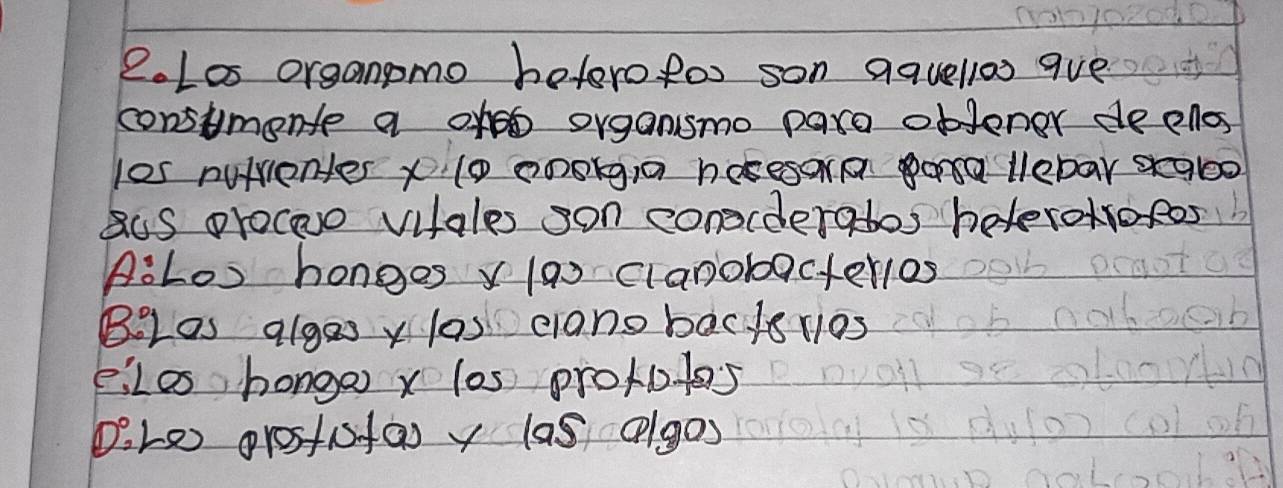 2. Los organismo heterofos son aquellos que
consumente a otros organismo para obtener de ellos
los nutrientes y la energia nesesaria para llebar acabo
sus proceso vitales son conscderatos heterotrofos
A: Los honges y las cianobacterias
B: Las algas y las ciano bacterias
C: Los honges y los protistas
D: Los prostistas y las algas